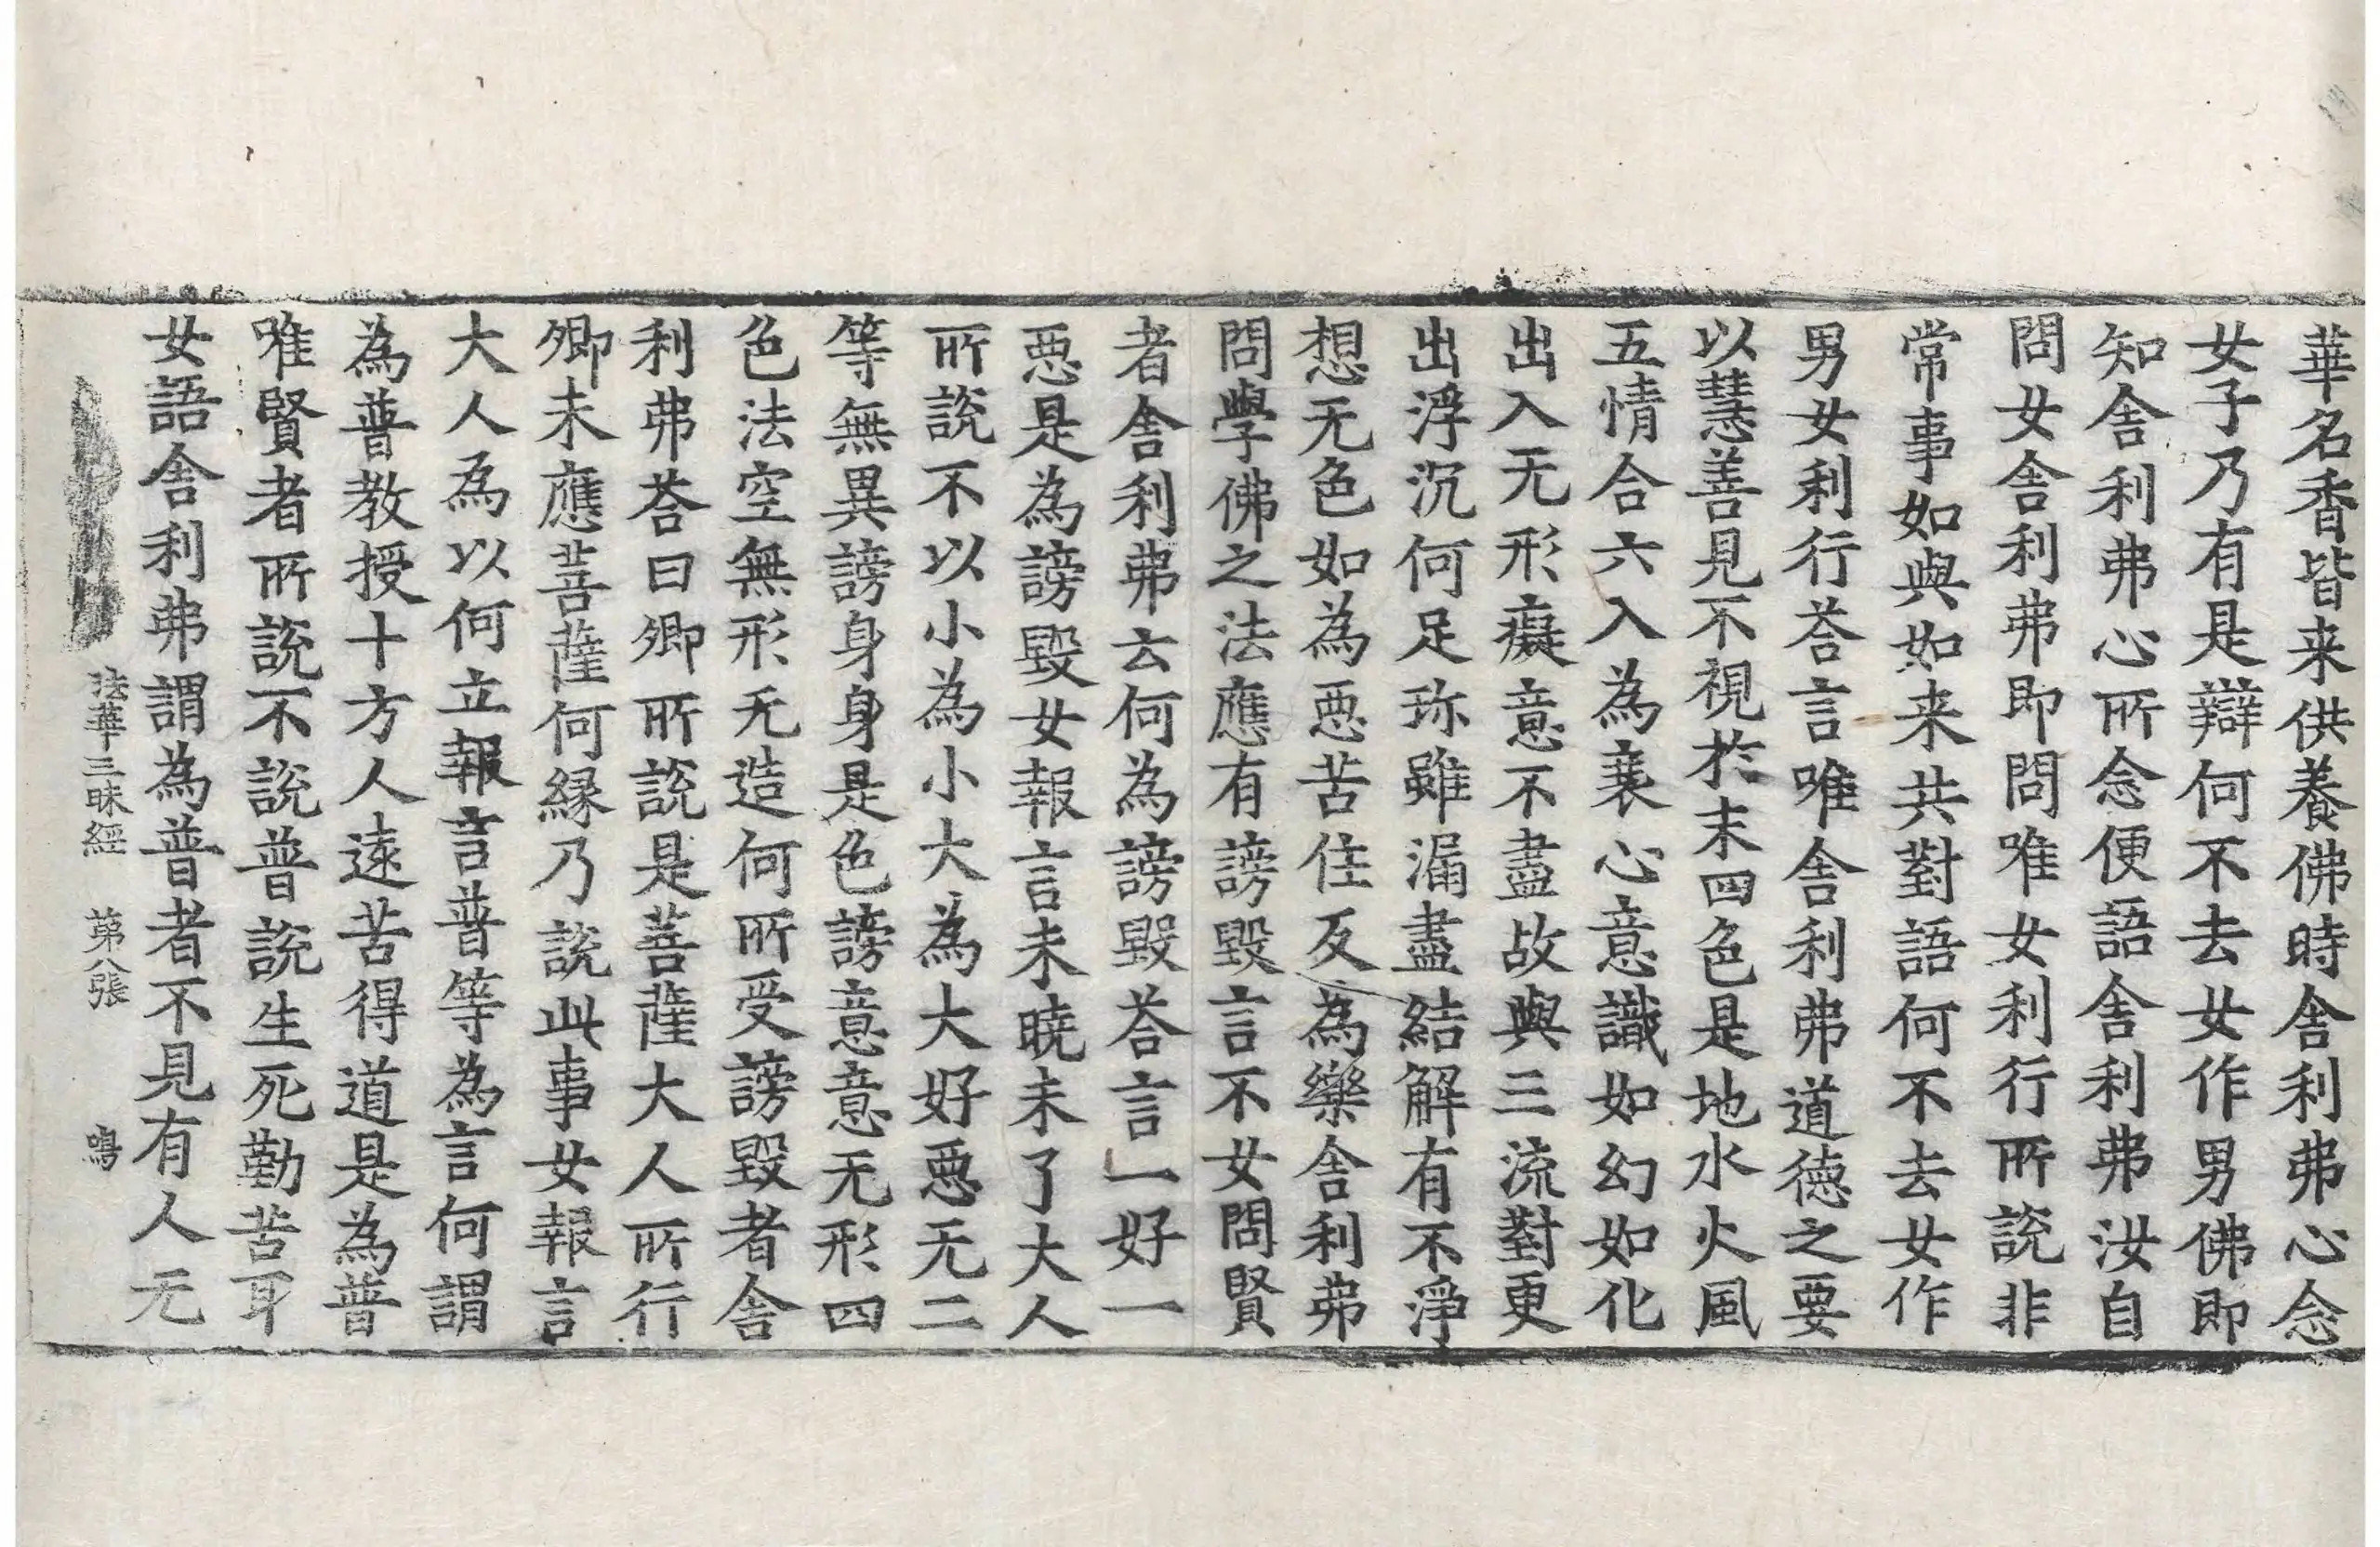 華名香皆来供養佛時舎利弗心念
女子乃有是辯何不去女作男佛即
知舎利弗心所念便語舎利弗汝自
問女舎利弗即問唯女利行所說非
常事如與如来共對語何不去女作
男女利行荅言唯舎利弗道德之要
以慧善見不視於末四色是地水火風
五情合六入為衰心意識如幻如化
出入无形癡意不盡故與三流對更
出浮沉何足珎雖漏盡結解有不淨
想无色如為惡苦住反為樂舎利弗
問學佛之法應有謗毀言不女問賢
者舎利弗云何為謗毀荅言一好一
惡是為謗毀女報言未曉未了大人
所說不以小為小大為大好惡无二
等無異謗身身是色謗意意无形四
色法空無形无造何所受謗毀者舎
利弗荅曰卿所說是菩薩大人所行
卿未應菩薩何縁乃說此事女報言
大人為以何立報言普等為言何謂
為普教授十方人遠苦得道是為普
唯賢者所說不說普說生死勤苦耳
女語舎利弗謂為普者不見有人无
法華三昧經 第八張 鳴